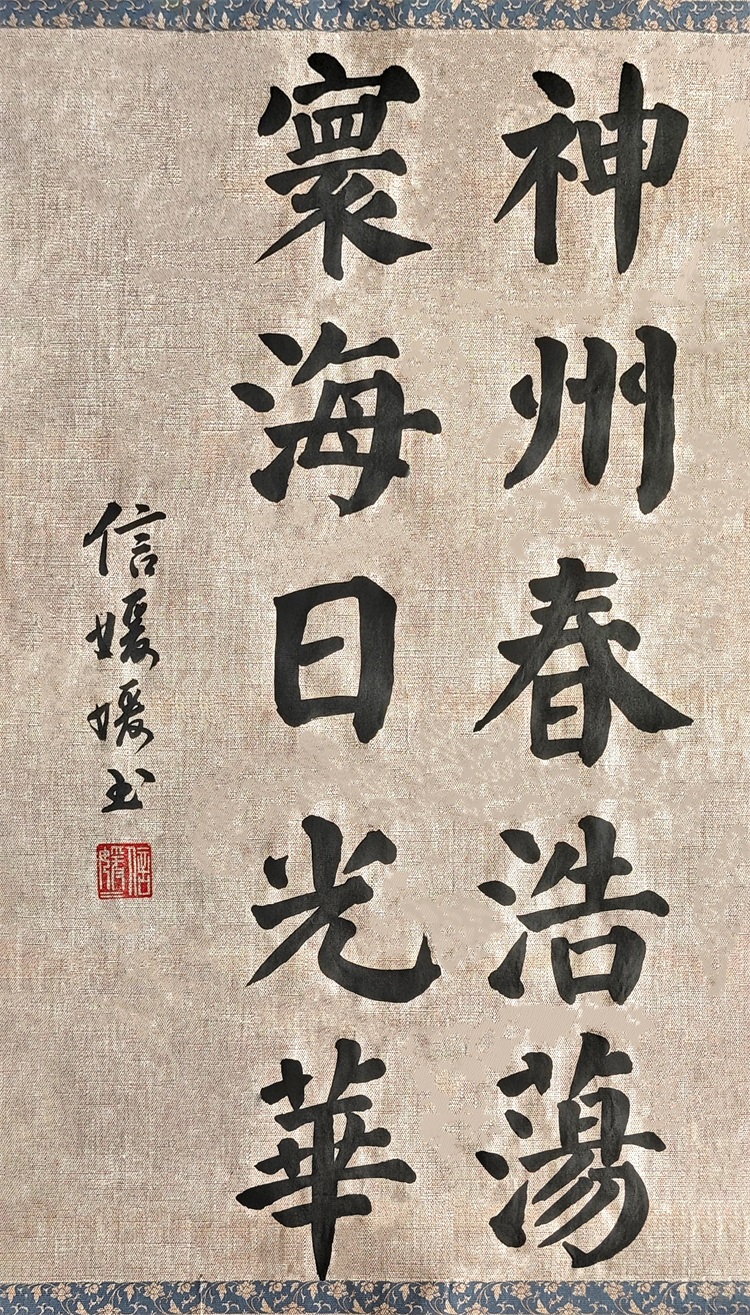 神州春浩蕩
寰海日光華
信媛媛书